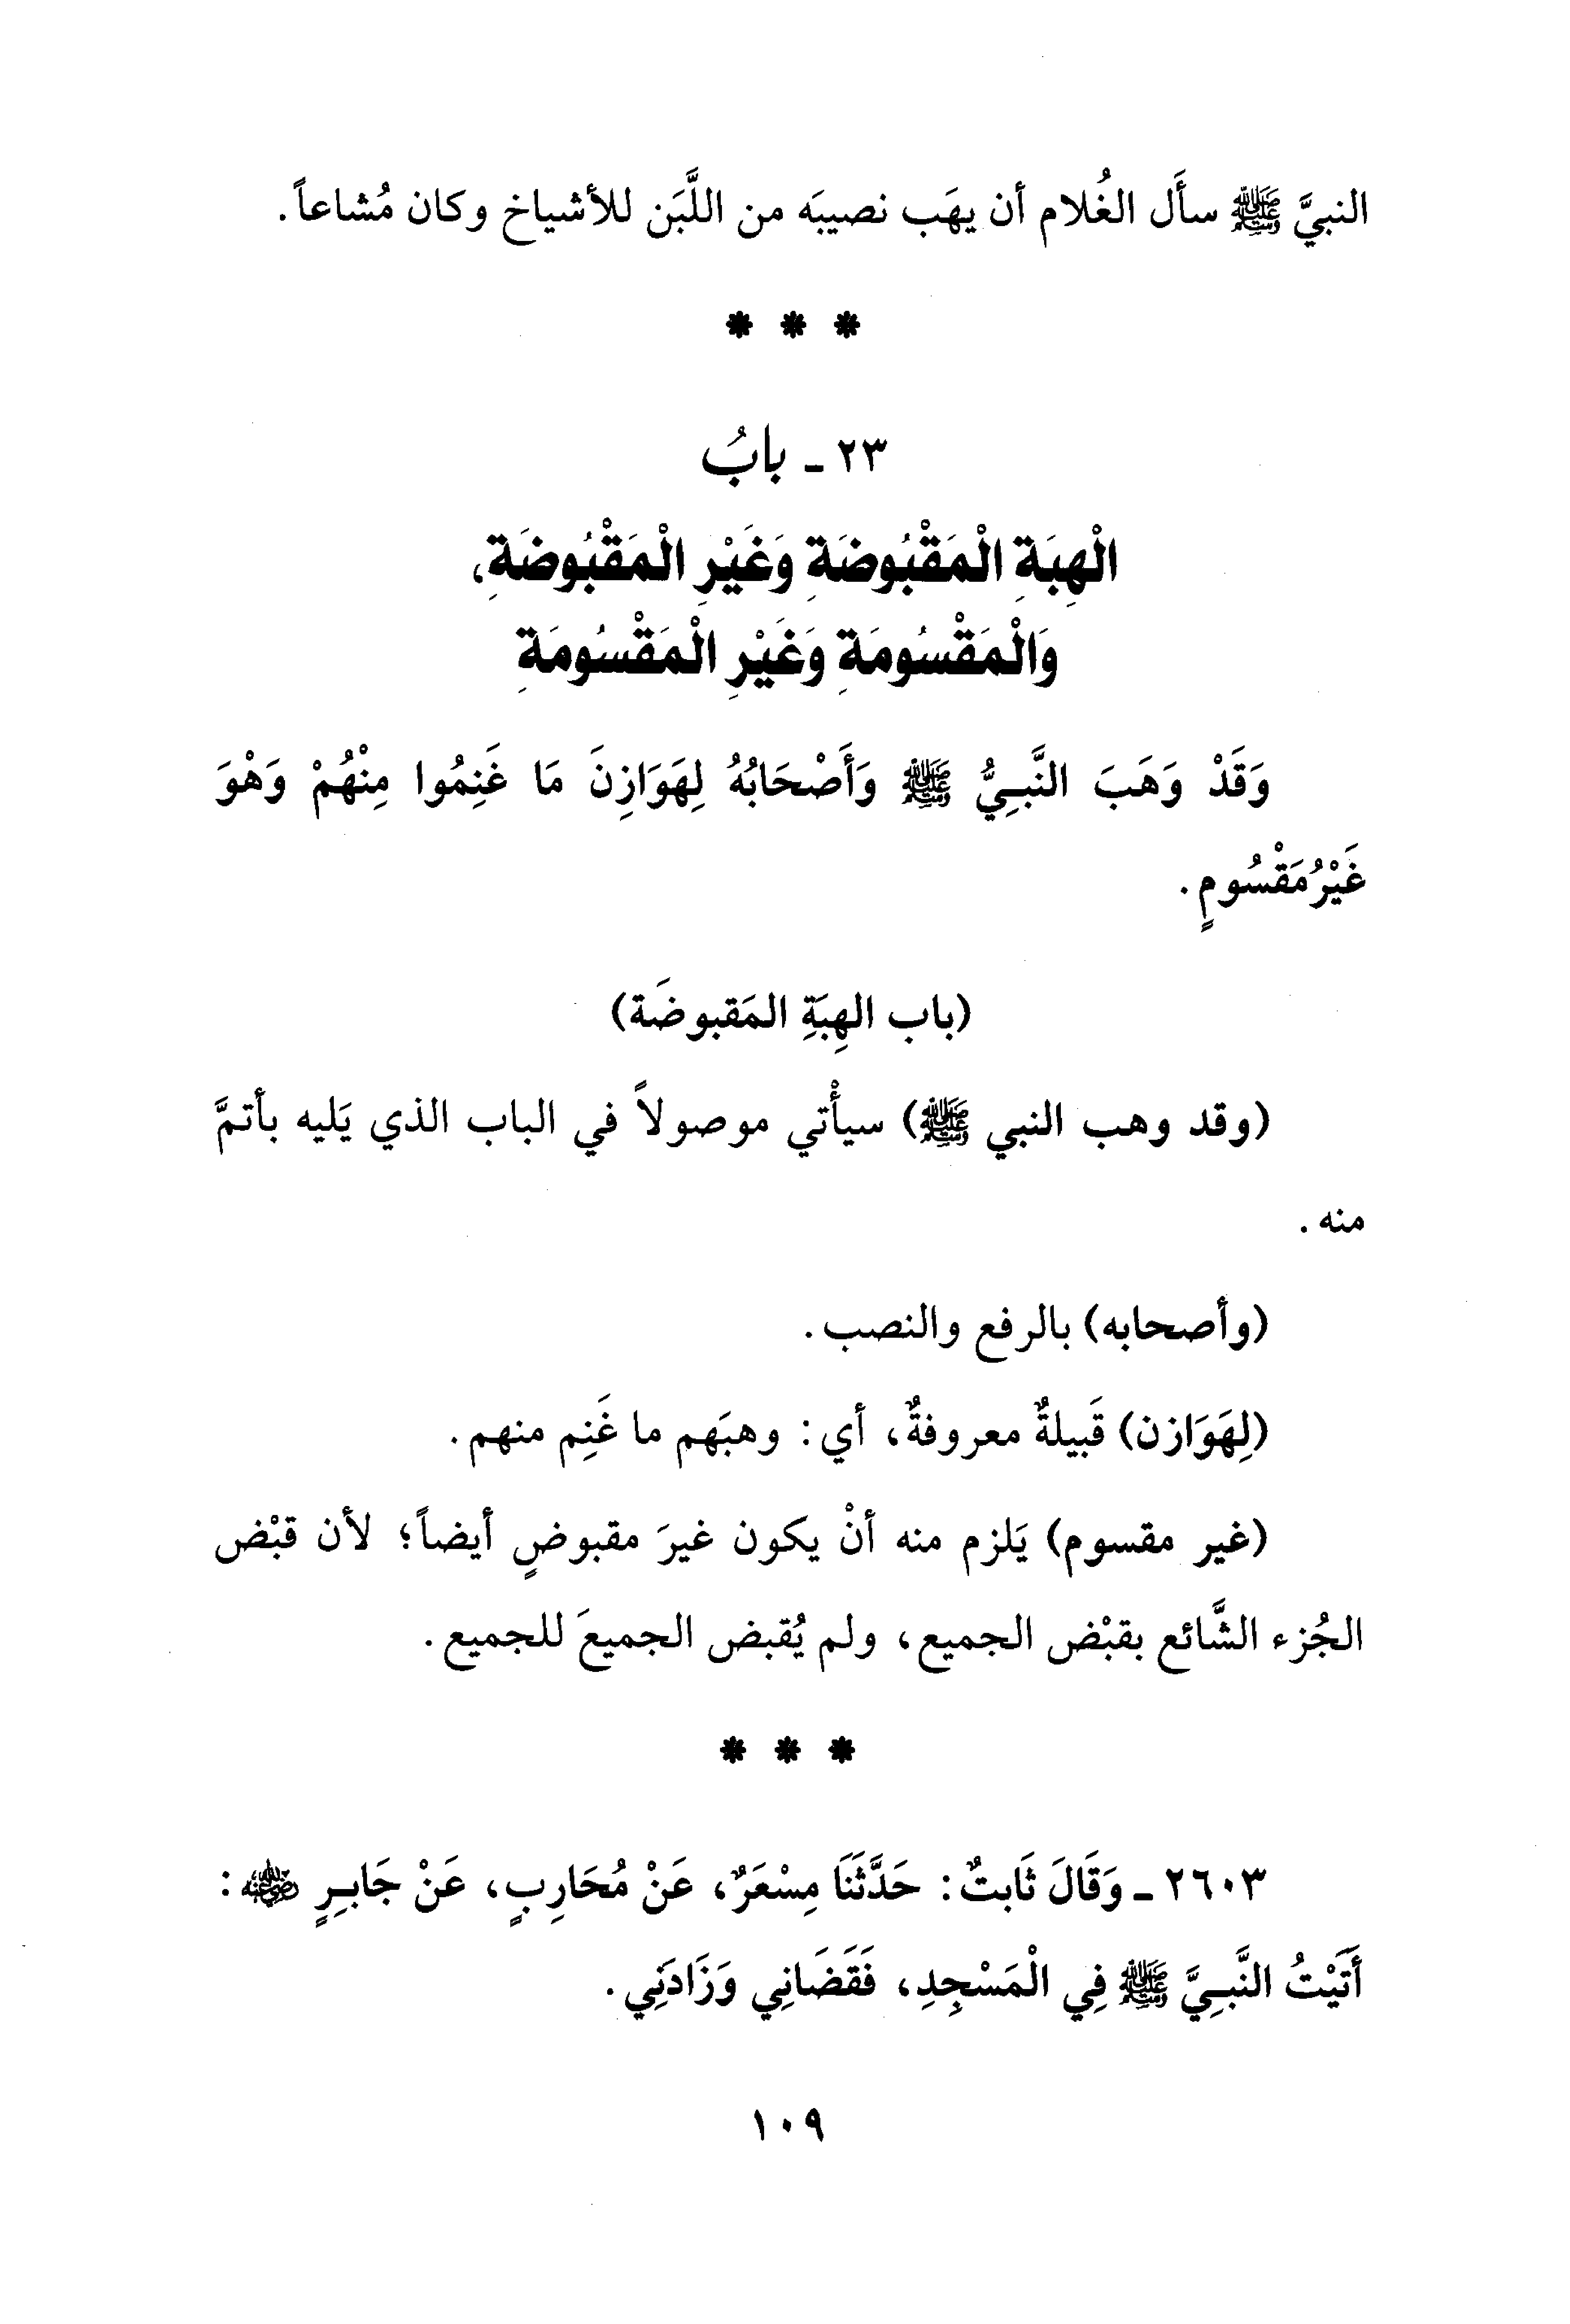 النبيَّ ﷺ سأَل الغُلام أن يهَب نصيبَه من اللَّبَن للأشياخ وكان مُشاعاً.
* * *
٢٣ ـ بابُ
الْهِبَةِ الْمَقْبُوضَةِ وَغَيْرِ الْمَقْبُوضَةِ،
وَالْمَقْسُومَةِ وَغَيْرِ الْمَقْسُومَةِ
وَقَدْ وَهَبَ النَّبِيُّ ﷺ وَأَصْحَابُهُ لِهَوَازِنَ مَا غَنِمُوا مِنْهُمْ وَهْوَ
غَيْرُ مَقْسُومٍ.
(باب الهِبَةِ المَقبوضَة)
(وقد وهب النبي ﷺ) سيأْتي موصولاً في الباب الذي يَليه بأتمَّ
منه.
(وأصحابه) بالرفع والنصب.
(لِهَوَازن) قَبيلةٌ معروفةٌ، أي: وهبَهم ما غَنِم منهم.
(غير مقسوم) يَلزم منه أنْ يكون غيرَ مقبوضٍ أيضاً؛ لأن قبْض
الجُزء الشَّائع بقبْض الجميع، ولم يُقبض الجميعَ للجميع.
* * *
٢٦٠٣ ـ وَقَالَ ثَابتٌ: حَدَّثَنَا مِسْعَرٌ، عَنْ مُحَارِبٍ، عَنْ جَابِرٍ رضي الله عنه:
أَتَيْتُ النَّبِيَّ ﷺ فِي الْمَسْجِدِ، فَقَضَانِي وَزَادَنِي.
١٠٩